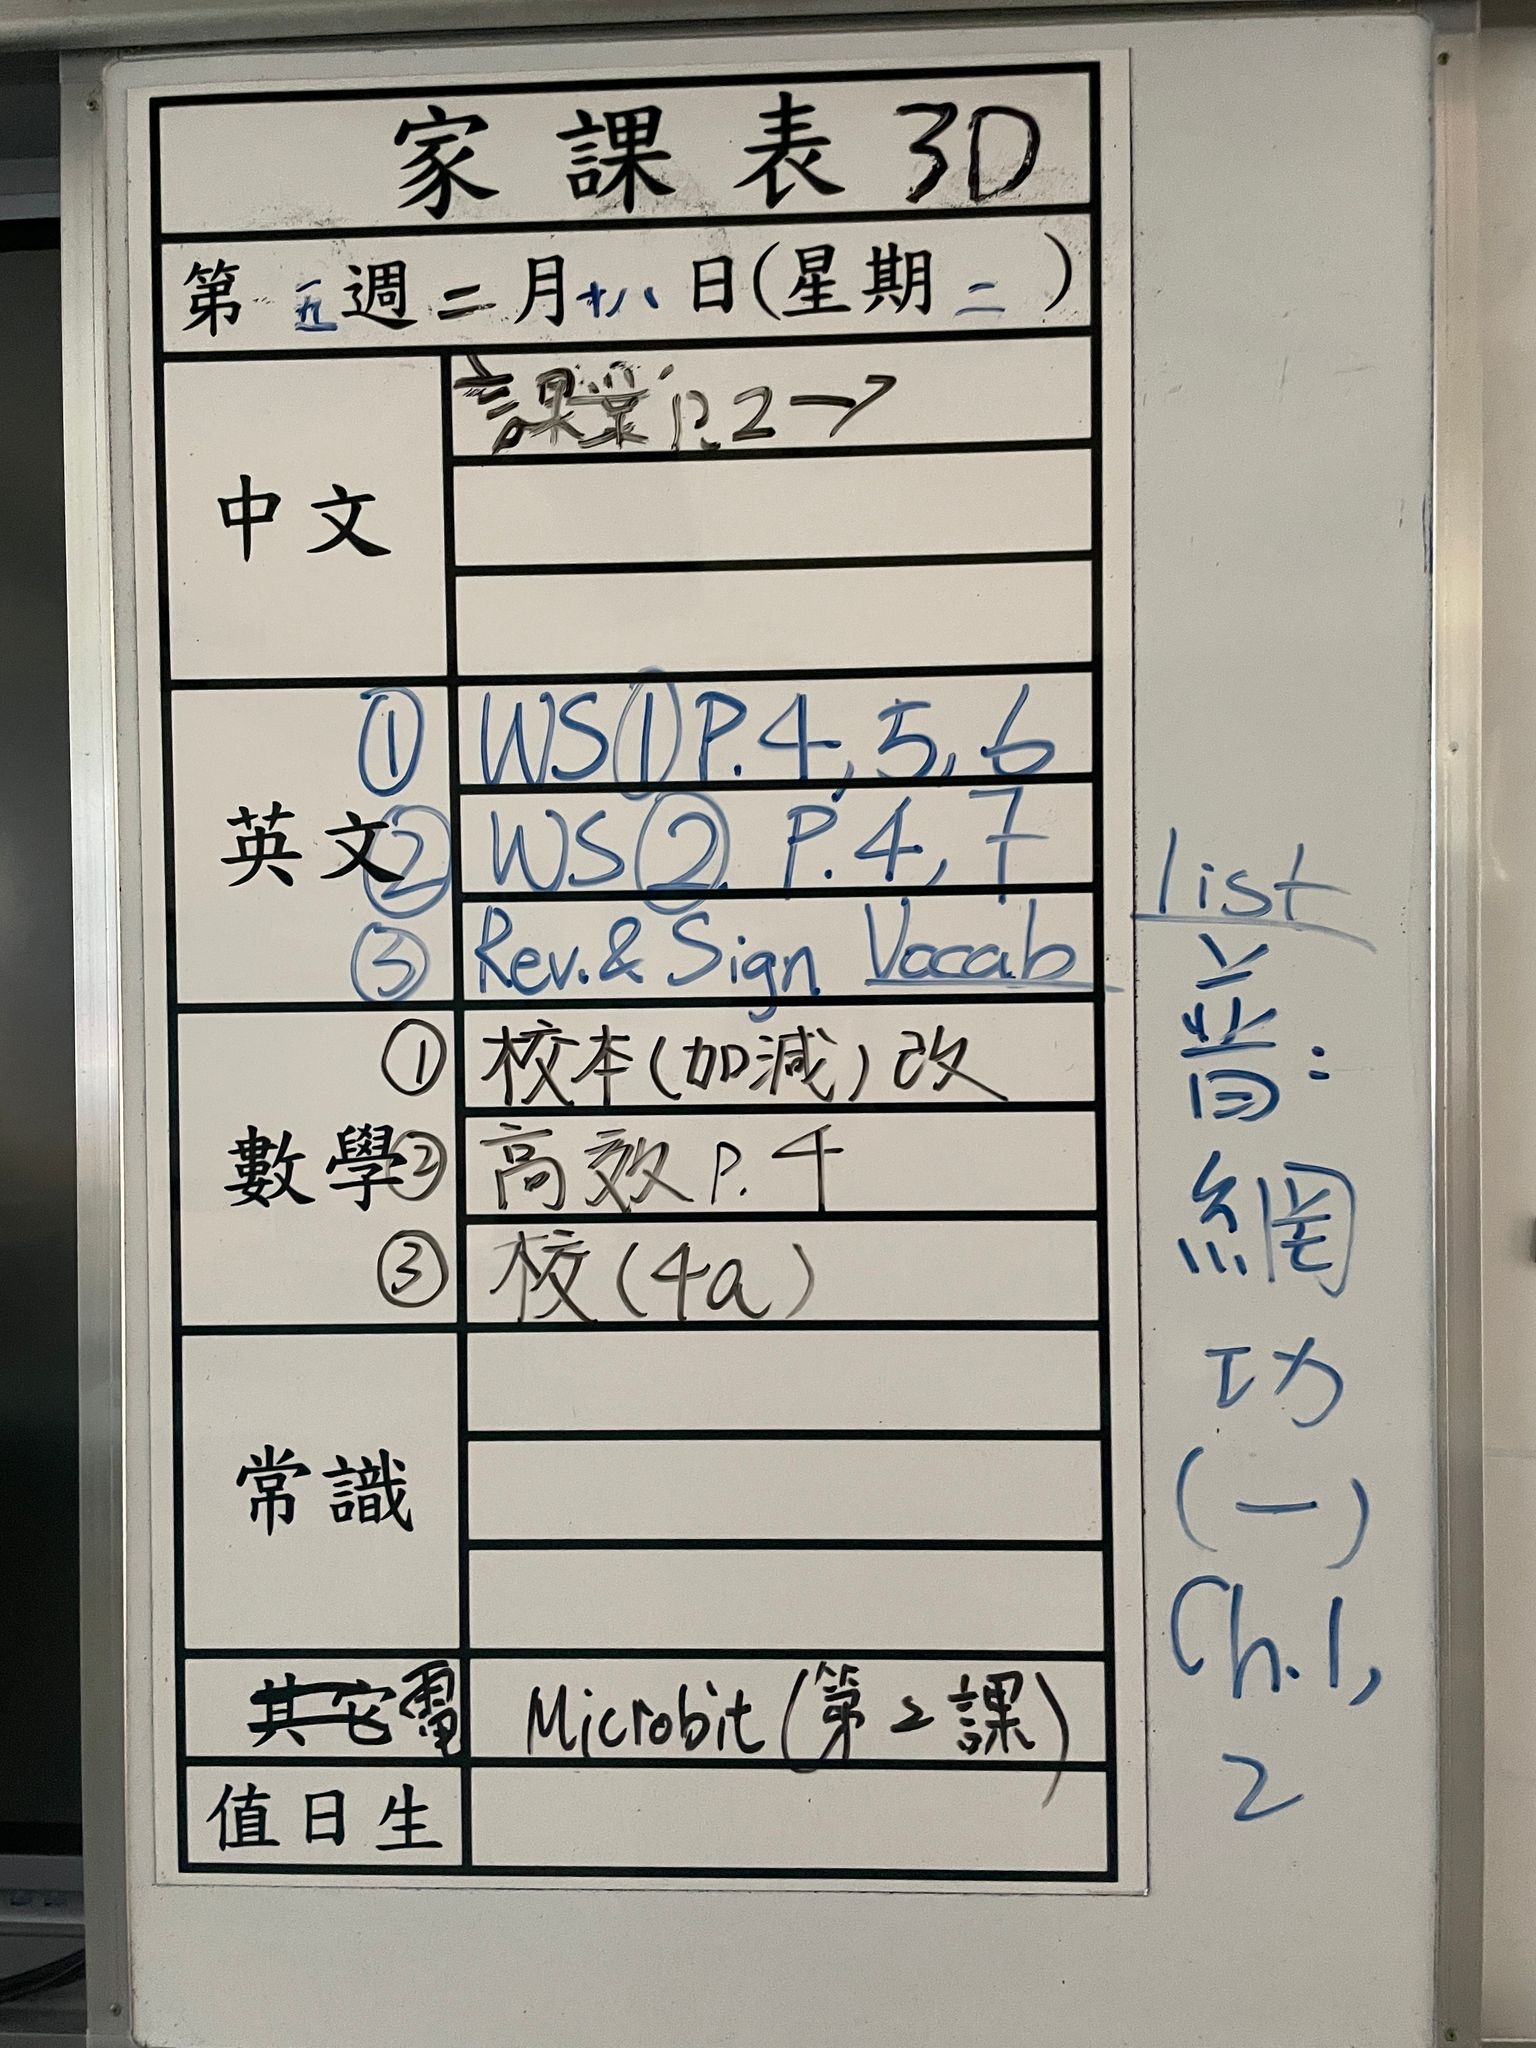 家課表 3D
第五週二月十八日(星期二)
中文
課業 P.2→
英文
① WS① P.4, 5, 6
② WS② P.4, 7
③ Rev. & Sign Vocab list
數學
① 校本(加減)改
② 高效 P.4
③ 校(4a)
常識
其它電 Microbit(第2課)
值日生
普:
網
功
(一)
Ch.1,
2